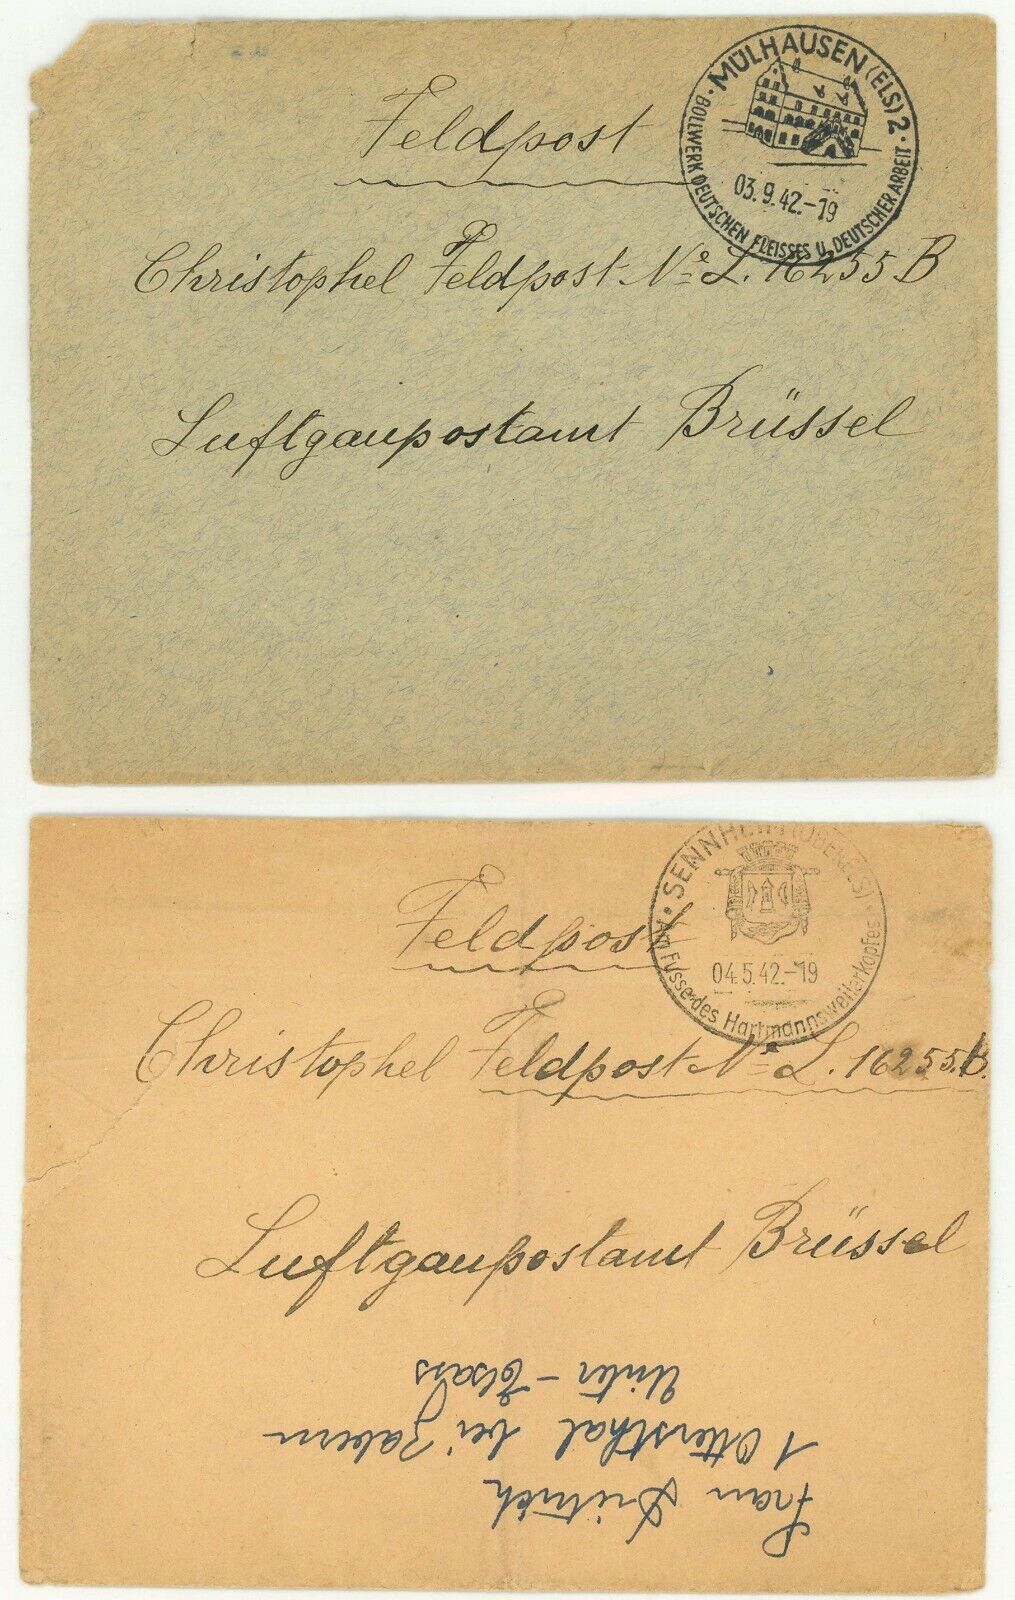 Feldpost
MÜLHAUSEN (ELS) 2
03.9.42.-19
BOLLWERK DEUTSCHEN FLEISSES U. DEUTSCHER ARBEIT
Christophel Feldpost Nº L. 16255.B
Luftgaupostamt Brüssel
Feldpost
SENNHEIM (OBERELS)
04.5.42.-19
Am Fusse des Hartmannsweilerkopfes
Christophel Feldpost Nº L. 16255.B.
Luftgaupostamt Brüssel
Frau Dietrich
1 Ottersthal bei Zabern
Unter-Elsass